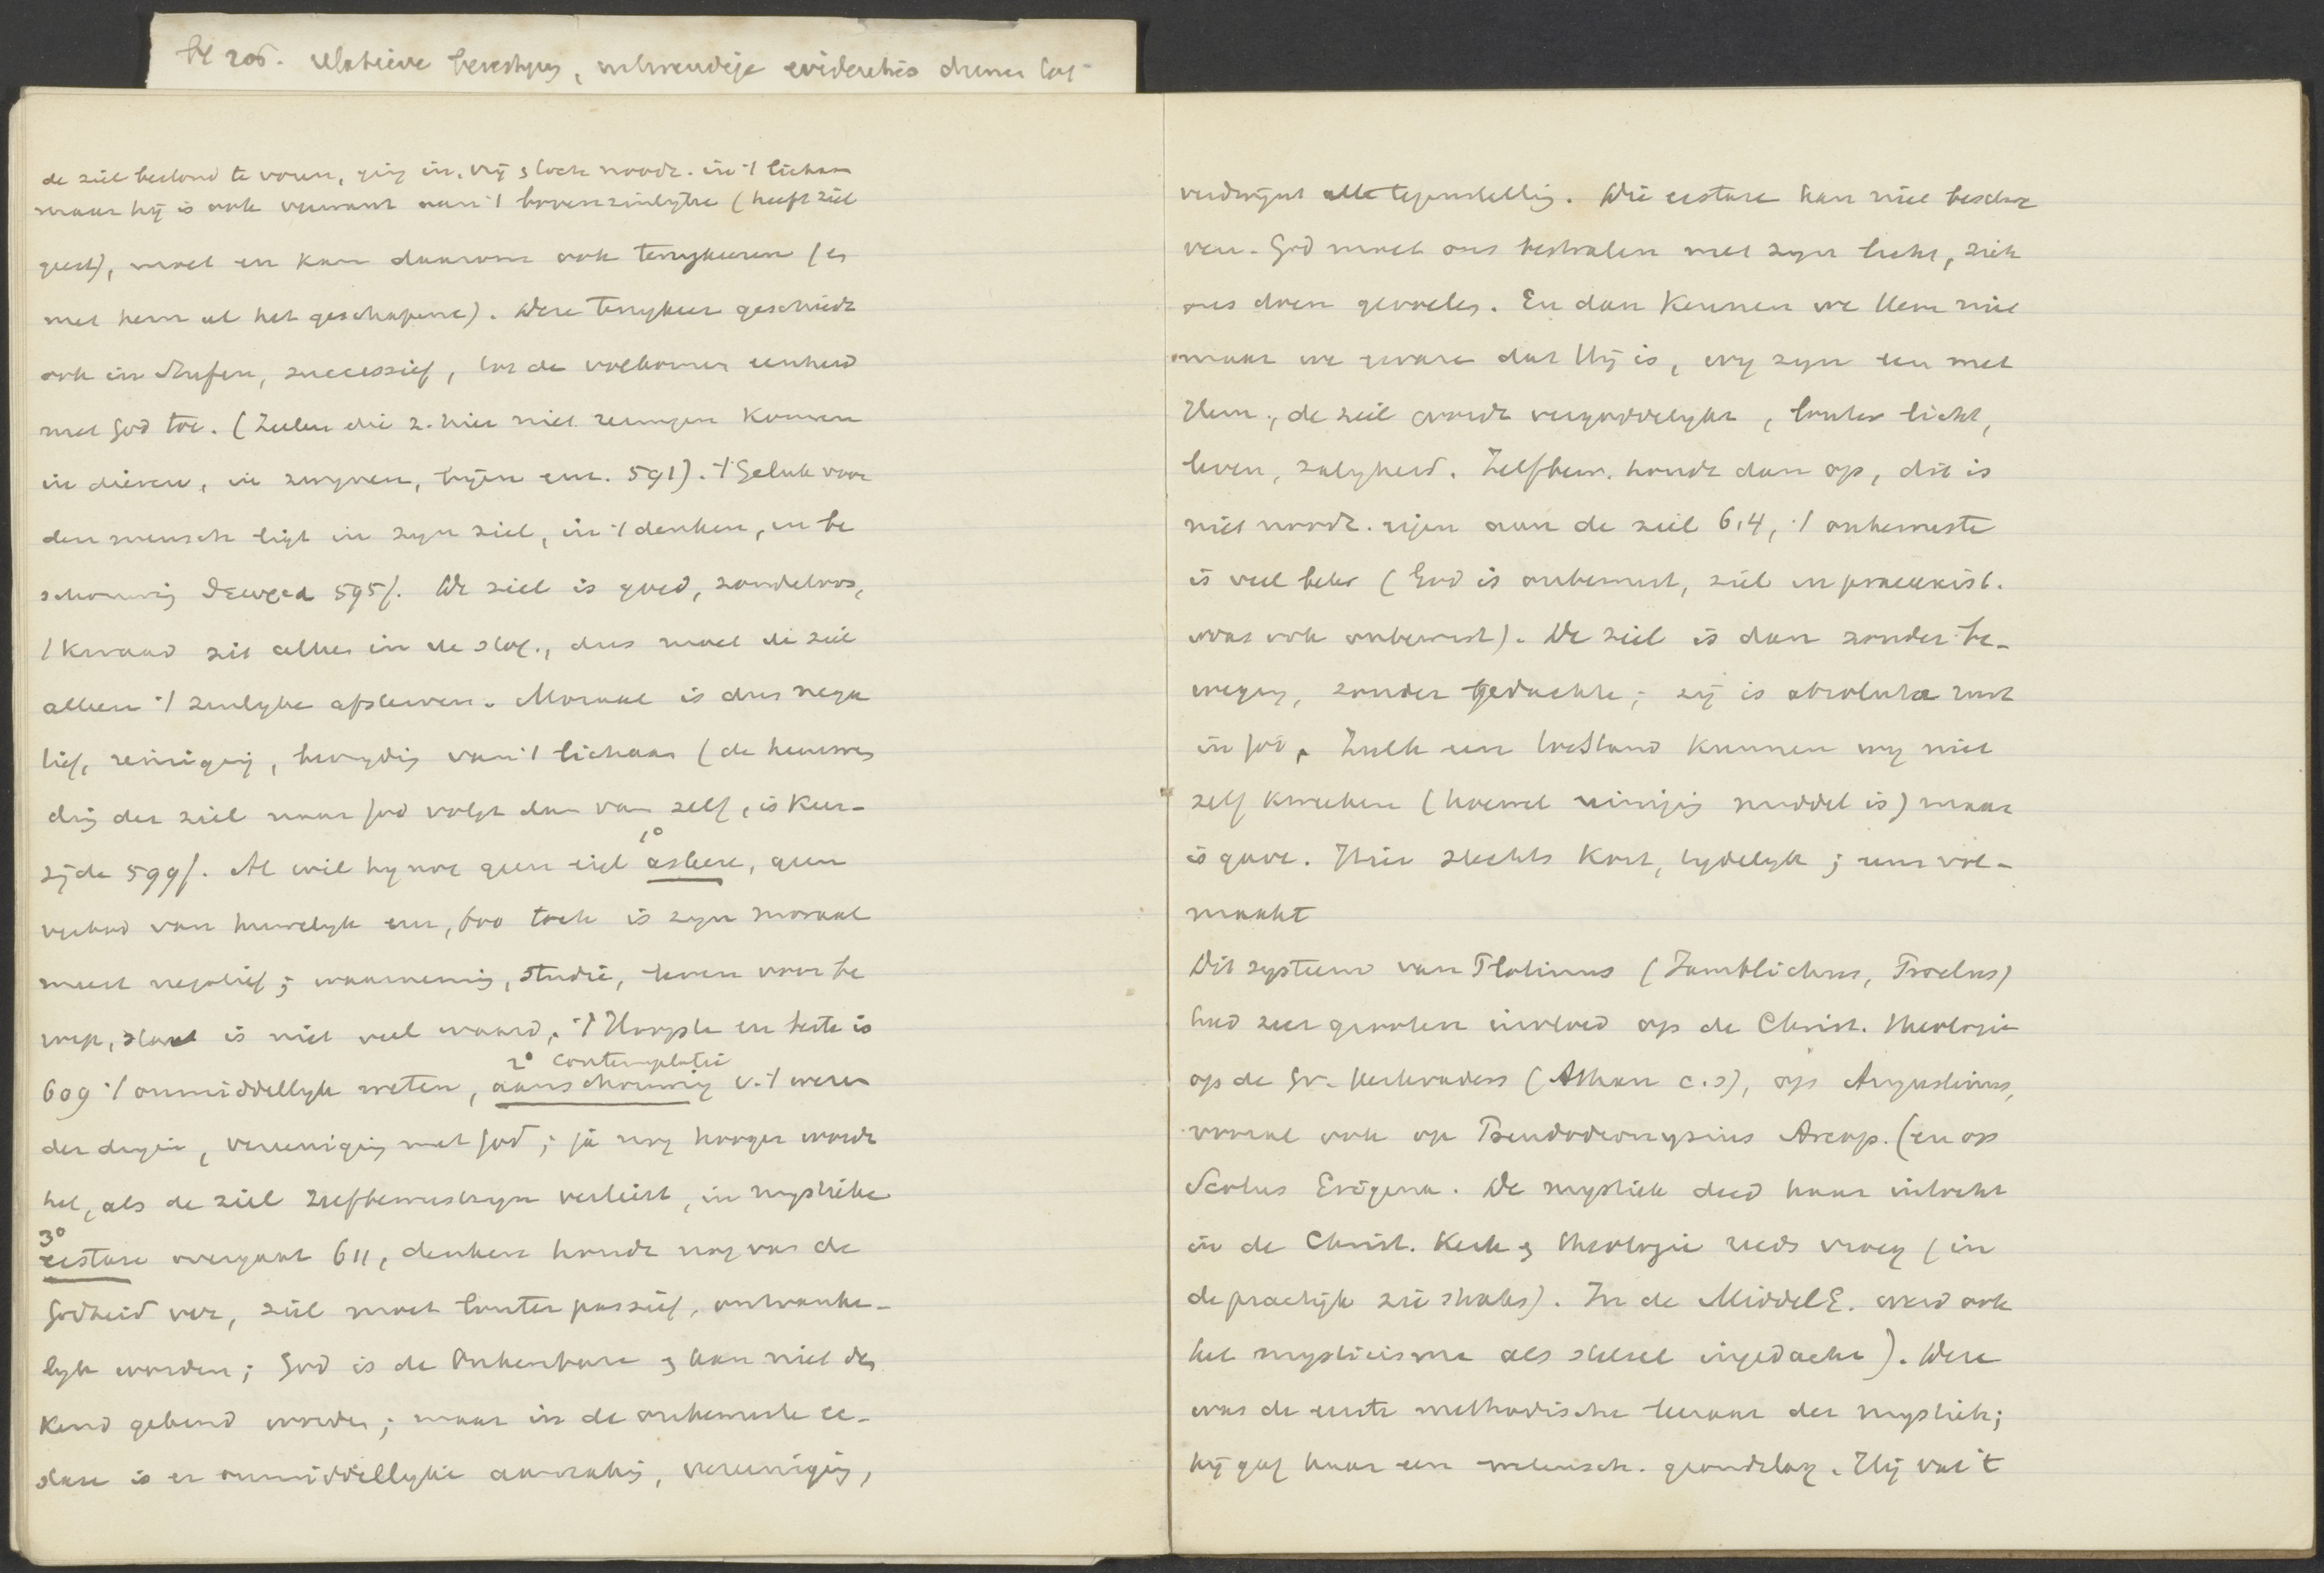 bl 206. relatieve
de ziel bestond te voren, ging in, vrij & toch noodz. in 't lichaam
maar hij is ook verwant aan 't bovenzinlijke (heeft ziel
geest), moet en kan daarom ook terugkeeren (en
met hem al het geschapene). Deze terugkeer geschiedt
ook in Stufen, successief, tot de volkomen eenheid
met God toe. (Zielen die z. hier niet reinigen komen
in dieren, in zwynen, bijen enz. 591). 't Geluk voor
den mensch ligt in zyn ziel, in 't denken, in be
schouwing θεωρια 595/. De ziel is goed, zondeloos,
't kwaad zit alleen in de stof, dus moet de ziel
alleen 't zinlyke afsterven. Moraal is dus nega
tief, reiniging, bevryding van 't lichaam (de heenwen
ding der ziel naar God volgt dan van zelf, is keer-
zijde 599/. Al wil hy nog geen eigl 1° askese, geen
verbod van huwelyk enz, 600 toch is zyn moraal
meest negatief; waarneming, studie, leven voor be
roep, staat is niet veel waard. 't Hoogste en beste is
609 't onmiddellyk weten, 2° aanschouwing contemplatie v. 't wezen
der dingen, vereeniging met God; ja nog hooger wordt
het, als de ziel zelfbewustzyn verliest, in mystieke
3° ecstase overgaat 611, denken houdt nog van de
Godheid ver, ziel moet louter passief, ontvanke-
lyk worden; God is de Onkenbare & kan niet den
kend gekend worden; maar in de onbewuste ec-
stase is er onmiddellyke aanraking, vereeniging,
verdwynt alle tegenstelling. Die ecstase kan niet beschre
ven. God moet ons bestralen met zyn licht, zich
ons doen gevoelen. En dan kennen we Hem niet
maar we ervare dat Hij is, wy zyn een met
Hem, de ziel wordt vergoddelykt, louter licht,
leven, zaligheid. Zelfbew. houdt dan op, dit is
niet noodz. eigen aan de ziel 614, 't onbewuste
is veel beter (God is onbewust, ziel in praeexist.
was ook onbewust). De ziel is dan zonder be-
weging, zonder gedachte; zij is absolute rust
in God. Zulk een toestand kunnen wy niet
zelf kweeken (hoewel reiniging middel is) maar
is gave. Hier slechts kort, tydelyk; eens vol-
maakt
Dit systeem van Plotinus (Jamblichus, Proclus)
had zeer grooten invloed op de Christ. theologie
op de Gr. kerkvaders (Athan c.s), op Augustinus,
vooral ook op Pseudodionysius Areop. (en op
Scotus Erigena. De mystiek deed haar intocht
in de Christ. Kerk & theologie reeds vroeg (in
de practijk zie straks). In de MiddelE. werd ook
het mysticisme als stelsel ingedacht). Deze
was de eerste methodische leeraar der mystiek;
hij gaf haar een wetensch. grondslag. Hij vat 't